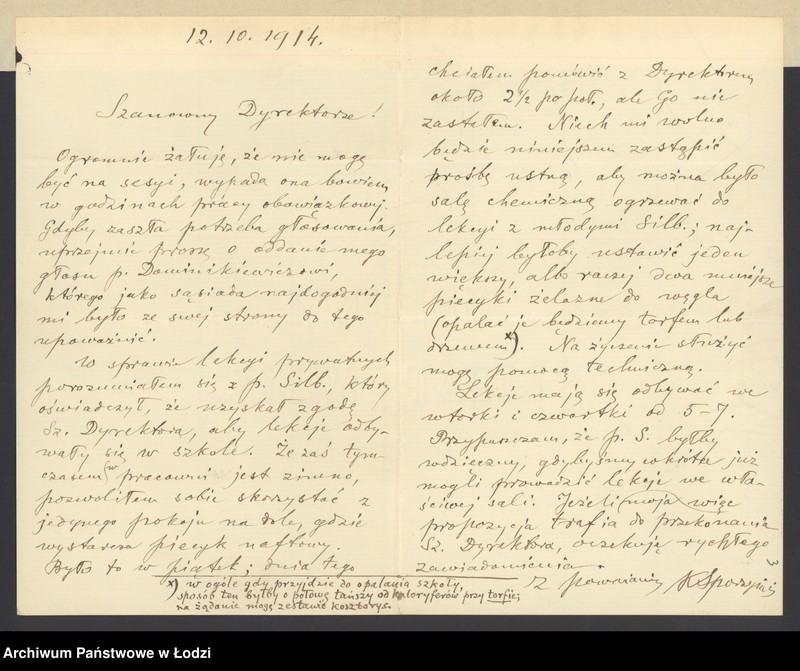 12.10.1914.
Szanowny Dyrektorze!
Ogromnie żałuję, że nie mogę
być na sesyi, wypada ona bowiem
w godzinach pracy obowiązkowej.
Gdyby zaszła potrzeba głosowania,
uprzejmie proszę o oddanie mego
głosu p. Dominikiewiczowi,
którego jako sąsiada najdogodniej
mi było ze swej strony do tego
upoważnić.
W sprawie lekcyi prywatnych
porozumiałem się z p. Silb., który
oświadczył, że uzyskał zgodę
Sz. Dyrektora, aby lekcje odby-
wały się w szkole. Że zaś tym-
czasem w pracowni jest zimno,
pozwoliłem sobie skorzystać z
jedynego pokoju na dole, gdzie
wystarcza piecyk naftowy.
Było to w piątek; dnia tego
chciałem pomówić z Dyrektorem
około 2 1/2 po poł., ale Go nie
zastałem. Niech mi wolno
będzie niniejszem zastąpić
prośbę ustną, aby można było
salę chemiczną ogrzewać do
lekcyi z młodymi Silb.; naj-
lepiej byłoby ustawić jeden
większy, albo raczej dwa mniejsze
piecyki żelazne do węgla
(opalać je będziemy torfem lub
drzewem x)). Na życzenie służyć
mogę pomocą techniczną.
Lekcje mają się odbywać we
wtorki i czwartki od 5–7.
Przypuszczam, że p. S. byłby
wdzięczny, gdybyśmy wkrótce już
mogli prowadzić lekcje we wła-
ściwej sali. Jeżeli moja więc
propozycja trafia do przekonania
Sz. Dyrektora, oczekuję rychłego
zawiadomienia.
Z poważaniem
x) w ogóle gdy przyjdzie do opalania szkoły,
sposób ten byłby o połowę tańszy od kaloryferów przy torfie;
na żądanie mogę zestawić kosztorys.
Archiwum Państwowe w Łodzi